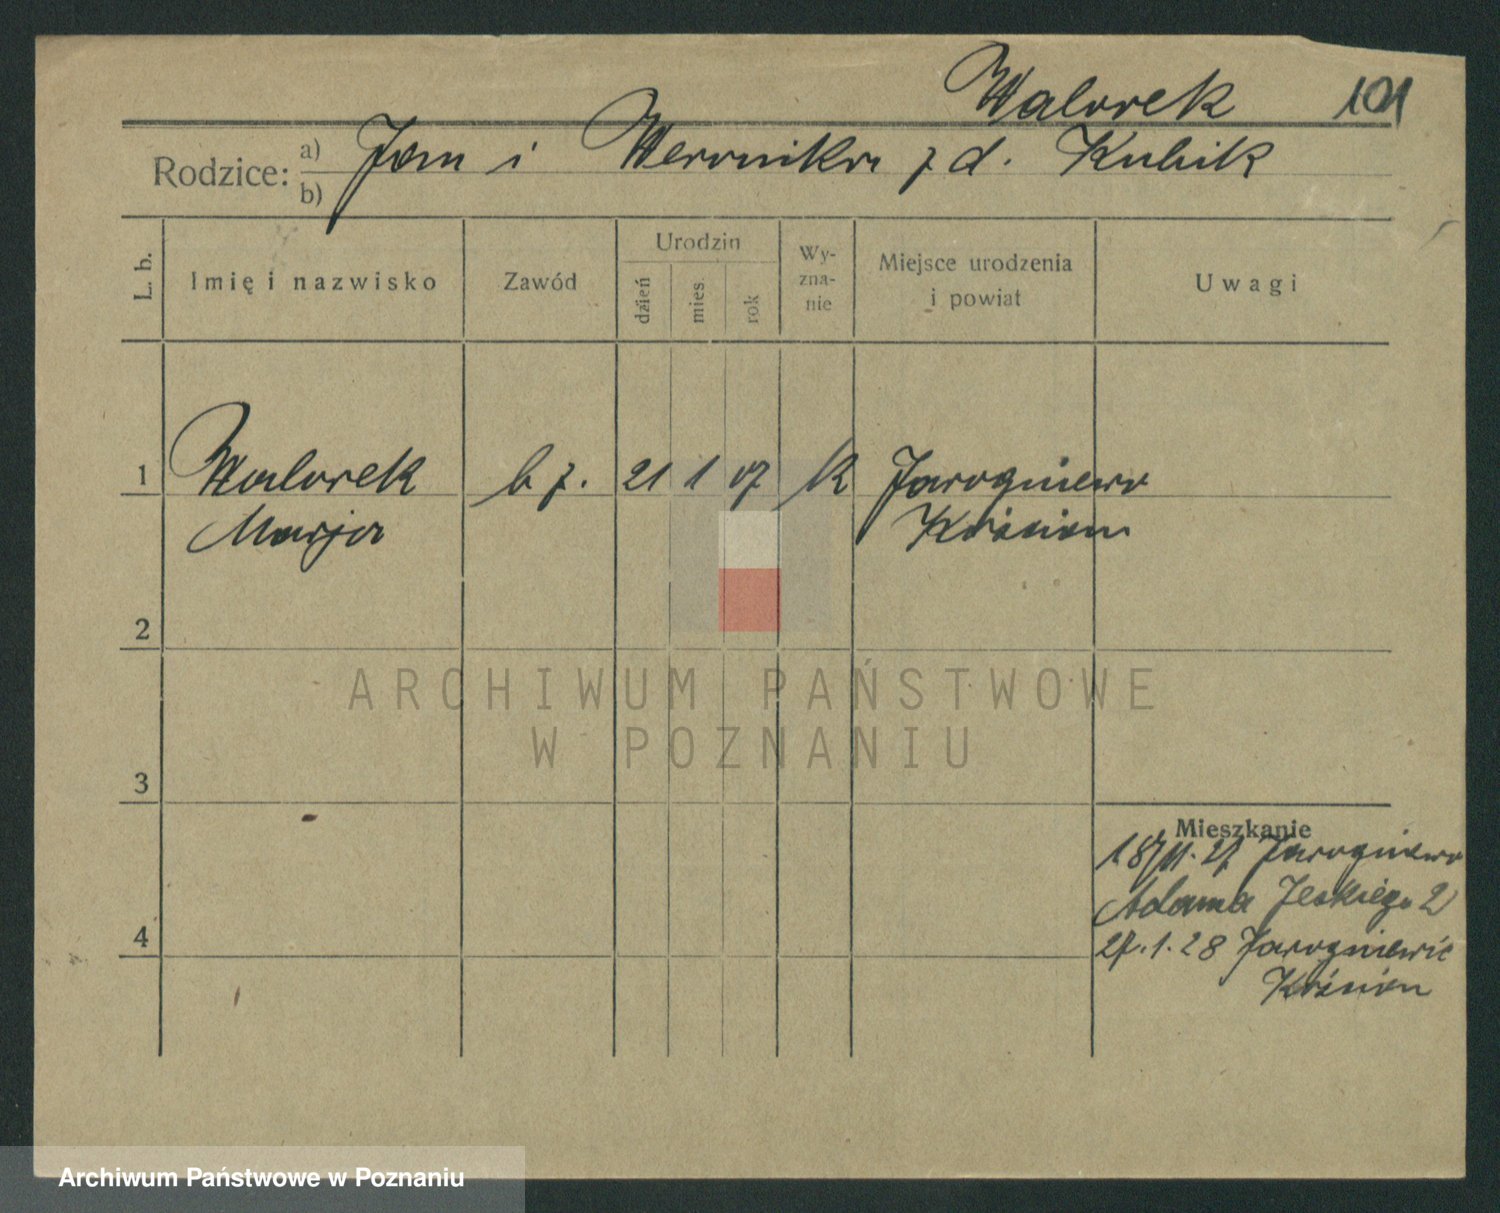 Walorek 101
Rodzice: a) Jan i Weronika z d. Kubik
b)
L. b.
Imię i nazwisko
Zawód
Urodzin
dzień
mies.
rok
Wy-
zna-
nie
Miejsce urodzenia
i powiat
Uwagi
1 Walorek b z. 21 1 07 k Jarogniewo
Marja Kościan
2
ARCHIWUM PAŃSTWOWE
W POZNANIU
3
Mieszkanie
Jarogniewo
Adama 2
4
27.1.28 Jarogniewic
Kościan
Archiwum Państwowe w Poznaniu